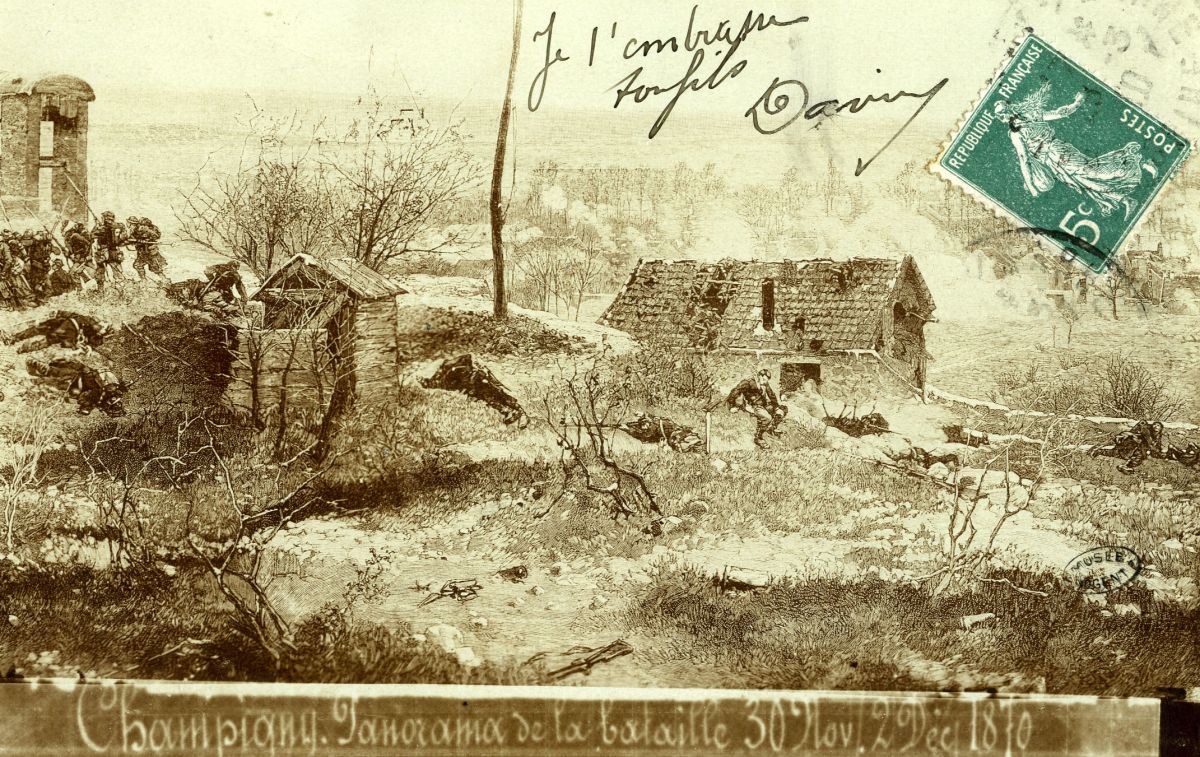 Je l'embrasse
ton fils
REPUBLIQUE FRANÇAISE
POSTES
5c
MUSÉE
Champigny. Panorama de la bataille 30 Nov. 2 Déc. 1870